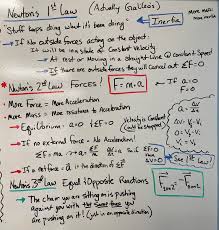 Newton's 1st Law (Actually Galileo's)
Stuff keeps doing what it's been doing
Inertia
More MASS
More inertia
If No outside forces acting on the object:
It will be in a state of Constant Velocity
At rest or Moving in a Straight Line @ constant Speed
If there are outside forces they will cancel ΣF=0
Newton's 2nd Law Forces!
F=ma
If a=0
F=0
More Force = More Acceleration
More Mass = More resistance to Acceleration
Equilibrium: a=0 if ΣF=0
Velocity is Constant
(could be stopped)
If no external force - No Acceleration!
See 1st Law!
If a net force - a is in the direction of ΣF
Newton's 3rd Law Equal Opposite Reactions
The chair you are sitting on is pushing
against you with the same force you
are pushing on it! (just in an opposite direction)